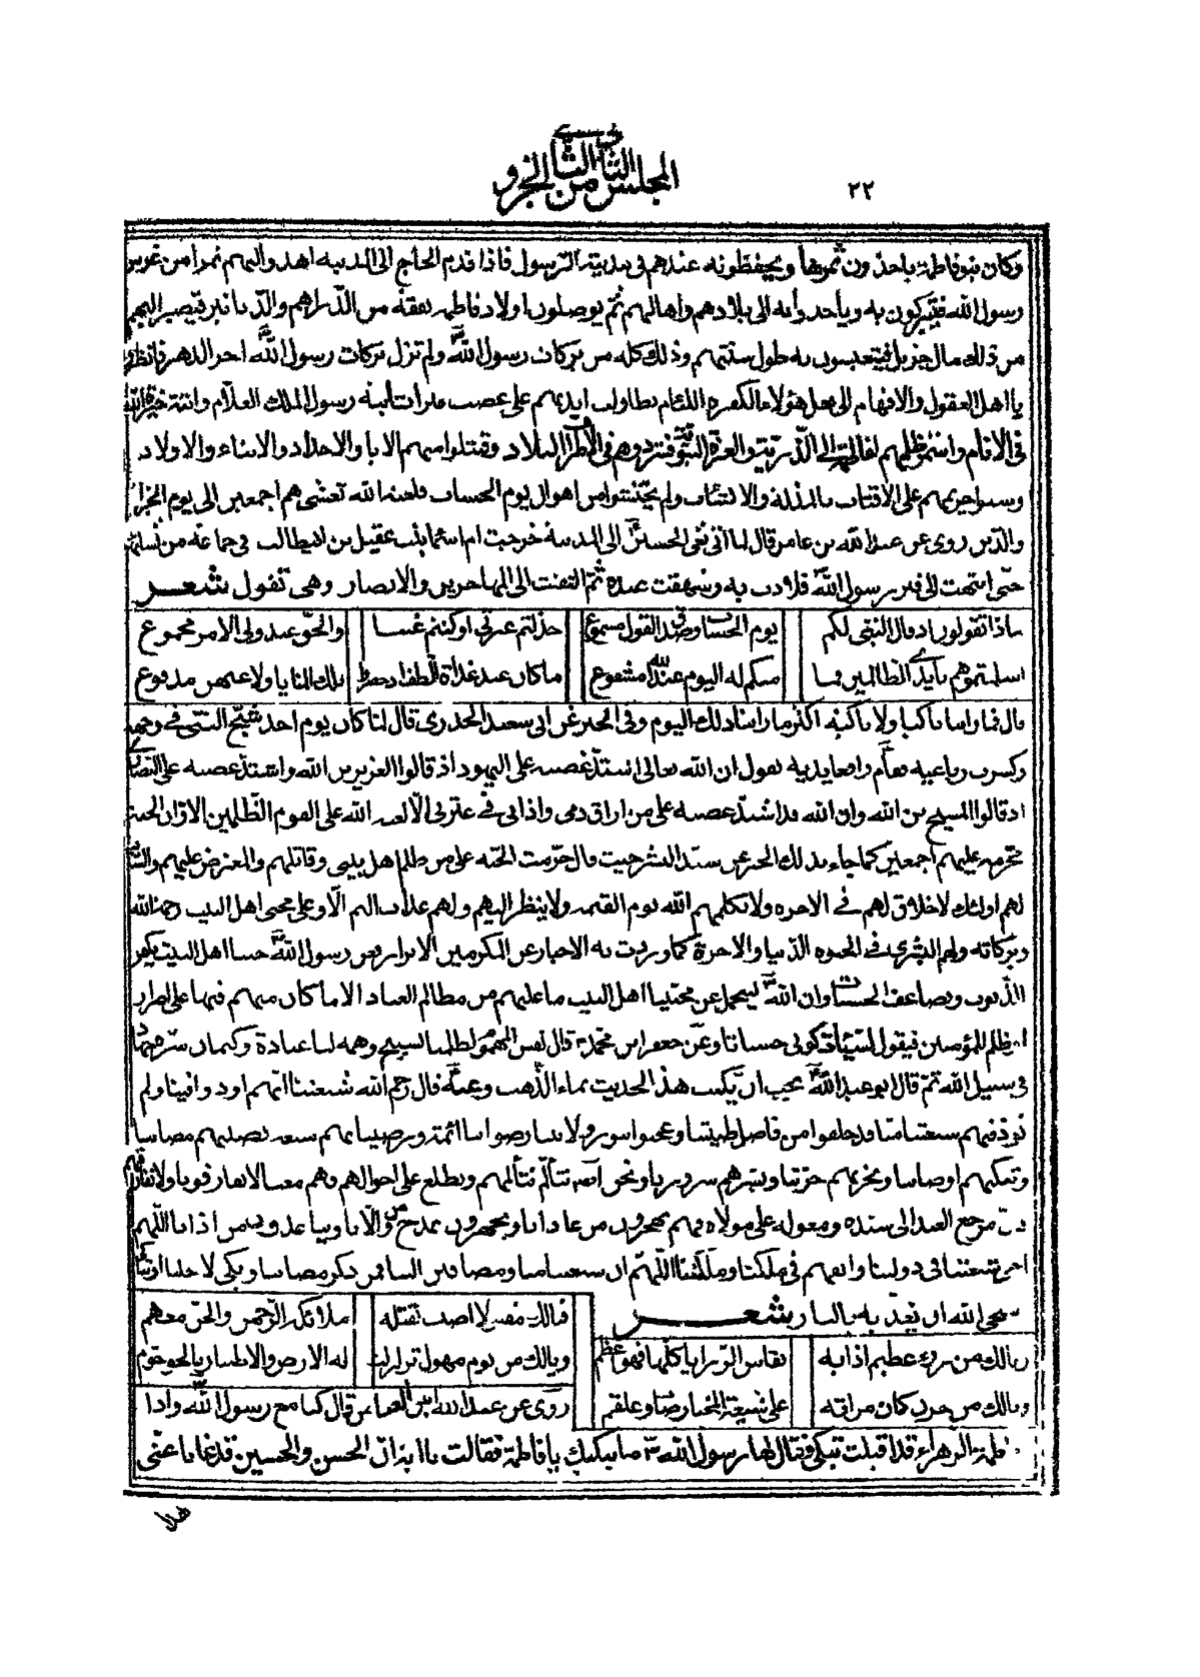 المجلس الثاني من الجزو الثاني
٢٢
وكان بنو فاطمة ياخذون ثمرها ويحفظونه عندهم في مدينة الرسول فاذا قدم الحاج الى المدينة اهدوا اليهم تمرا من غرس
رسول الله فيتبركون به ويأخذونه الى بلادهم واهاليهم ثم يوصلون اولاد فاطمة نفقة من الدراهم والدنانير فيصير اليهم
من ذلك مال جزيل فيتعيسون به طول سنتهم وذلك كله من بركات رسول الله ولم تزل بركات رسول الله اخر الدهر فانظروا
يا اهل العقول والافهام الى فعل هؤلاء الكفرة اللئام تطاولت ايديهم على غصب ميراث ابنة رسول الملك العلام وابنة خيرة الله
في الانام واستمر ظلمهم الى الذرية والعترة النبوية فشردوهم في البلاد وقتلوا منهم الابا والاجداد والابناء والاولاد
وسبوا حريمهم على الاقتاب بالمذلة والاكتئاب ولم يخشوا من اهوال يوم الحساب فلعنة الله تغشيهم اجمعين الى يوم الجزاء
والدين روى عن عبد الله بن عامر قال لما اتى نعى الحسين الى المدينة خرجت ام اسما بنت عقيل بن ابيطالب في جماعة من نسائها
حتى انتهت الى قبر رسول الله فلاذت به وشهقت عنده ثم التفتت الى المهاجرين والانصار وهي تقول شعر
ماذا تقولون اذ قال النبي لكم يوم الحساب وصدق القول مسموع خذلتم عترتي او كنتم غيبا والحق عند ولى الامر مجموع
اسلمتموهم بايدي الظالمين فما منكم له اليوم عند الله مشفوع ما كان عند غداة الطف اذ حضروا تلك المنايا ولا عنهن مدفوع
قال فما راينا باكيا ولا باكية اكثر مما راينا ذلك اليوم وفي الخبر عن ابى سعيد الخدرى قال لما كان يوم احد شج النبي في وجهه
وكسرت رباعيته فقام رافعا يديه يقول ان الله تعالى اشتد غضبه على اليهود اذ قالوا العزير بن الله واشتد غضبه على النصارى
اذ قالوا المسيح بن الله وان الله قد اشتد غضبه على من اراق دمى واذانى في عترتى الا لعنة الله على القوم الظالمين الا وان الجنة
محرمة عليهم اجمعين كما جاء بذلك الخبر عن سيد البشر حيث قال حرمت الجنة على من ظلم اهل بيتى وقاتلهم والمعترض عليهم والساب
لهم اولئك لا خلاق لهم في الاخرة ولا يكلمهم الله يوم القيمة ولا ينظر اليهم ولهم عذاب اليم الا وعلى محبى اهل البيت رحمة الله
وبركاته ولهم البشرى في الحيوة الدنيا والاخرة كما وردت به الاخبار عن المكرمين الابرار وعن رسول الله حبنا اهل البيت يكفر
الذنوب ويضاعف الحسنات وان الله ليتحمل عن محبينا اهل البيت ما عليهم من مظالم العباد الا ما كان منهم فيها على اضرار
او ظلم للمؤمنين فيقول للسيئات كونى حسنات وعن جعفر ابن محمد قال نفس المهموم لظلمنا تسبيح وهمه لنا عبادة وكتمان سرنا جهاد
في سبيل الله ثم قال ابو عبد الله يجب ان يكتب هذا الحديث بماء الذهب وعنه قال رحم الله شيعتنا انهم اوذوا فينا ولم
نوذ فيهم شيعتنا منا قد خلقوا من فاضل طينتنا وعجنوا بنور ولايتنا رضوا بنا ائمة ورضينا بهم شيعة يصيبهم مصابنا
وتبكيهم اوصابنا ويحزنهم حزننا ويسرهم سرورنا ونحن ايضا نتألم بتألمهم ونطلع على احوالهم وهم معنا لا يفارقونا ولا نفارقهم
لان مرجع العبد الى سيده ومعوله على مولاه فهم يهجرون من عادانا ويجهرون بمدح من والانا ويباعدون من اذانا اللهم
احى شيعتنا في دولتنا وابقهم في ملكنا ومملكتنا اللهم ان شيعتنا منا ومضافين الينا فمن ذكر مصابنا وبكى لاجلنا او تباكى
استحى الله ان يعذبه بالنار شعر
فيالك مقتولا اصيب بقتله ملائكة الرحمن والجن معهم
ويالك من رزء عظيم اذا به تقاس الرزايا كلها فهو اعظم ويالك من يوم مهول تزلزلت له الارض والاطيار بالجو حوم
ويالك من حزن كان مذاقه على شيعة المختار صاب وعلقم روى عن عبد الله ابن العباس قال كنا مع رسول الله واذا
فاطمة الزهراء قد اقبلت تبكى فقال لها رسول الله ص ما يبكيك يا فاطمة فقالت يا ابة ان الحسن والحسين قد غابا عنى
هذا